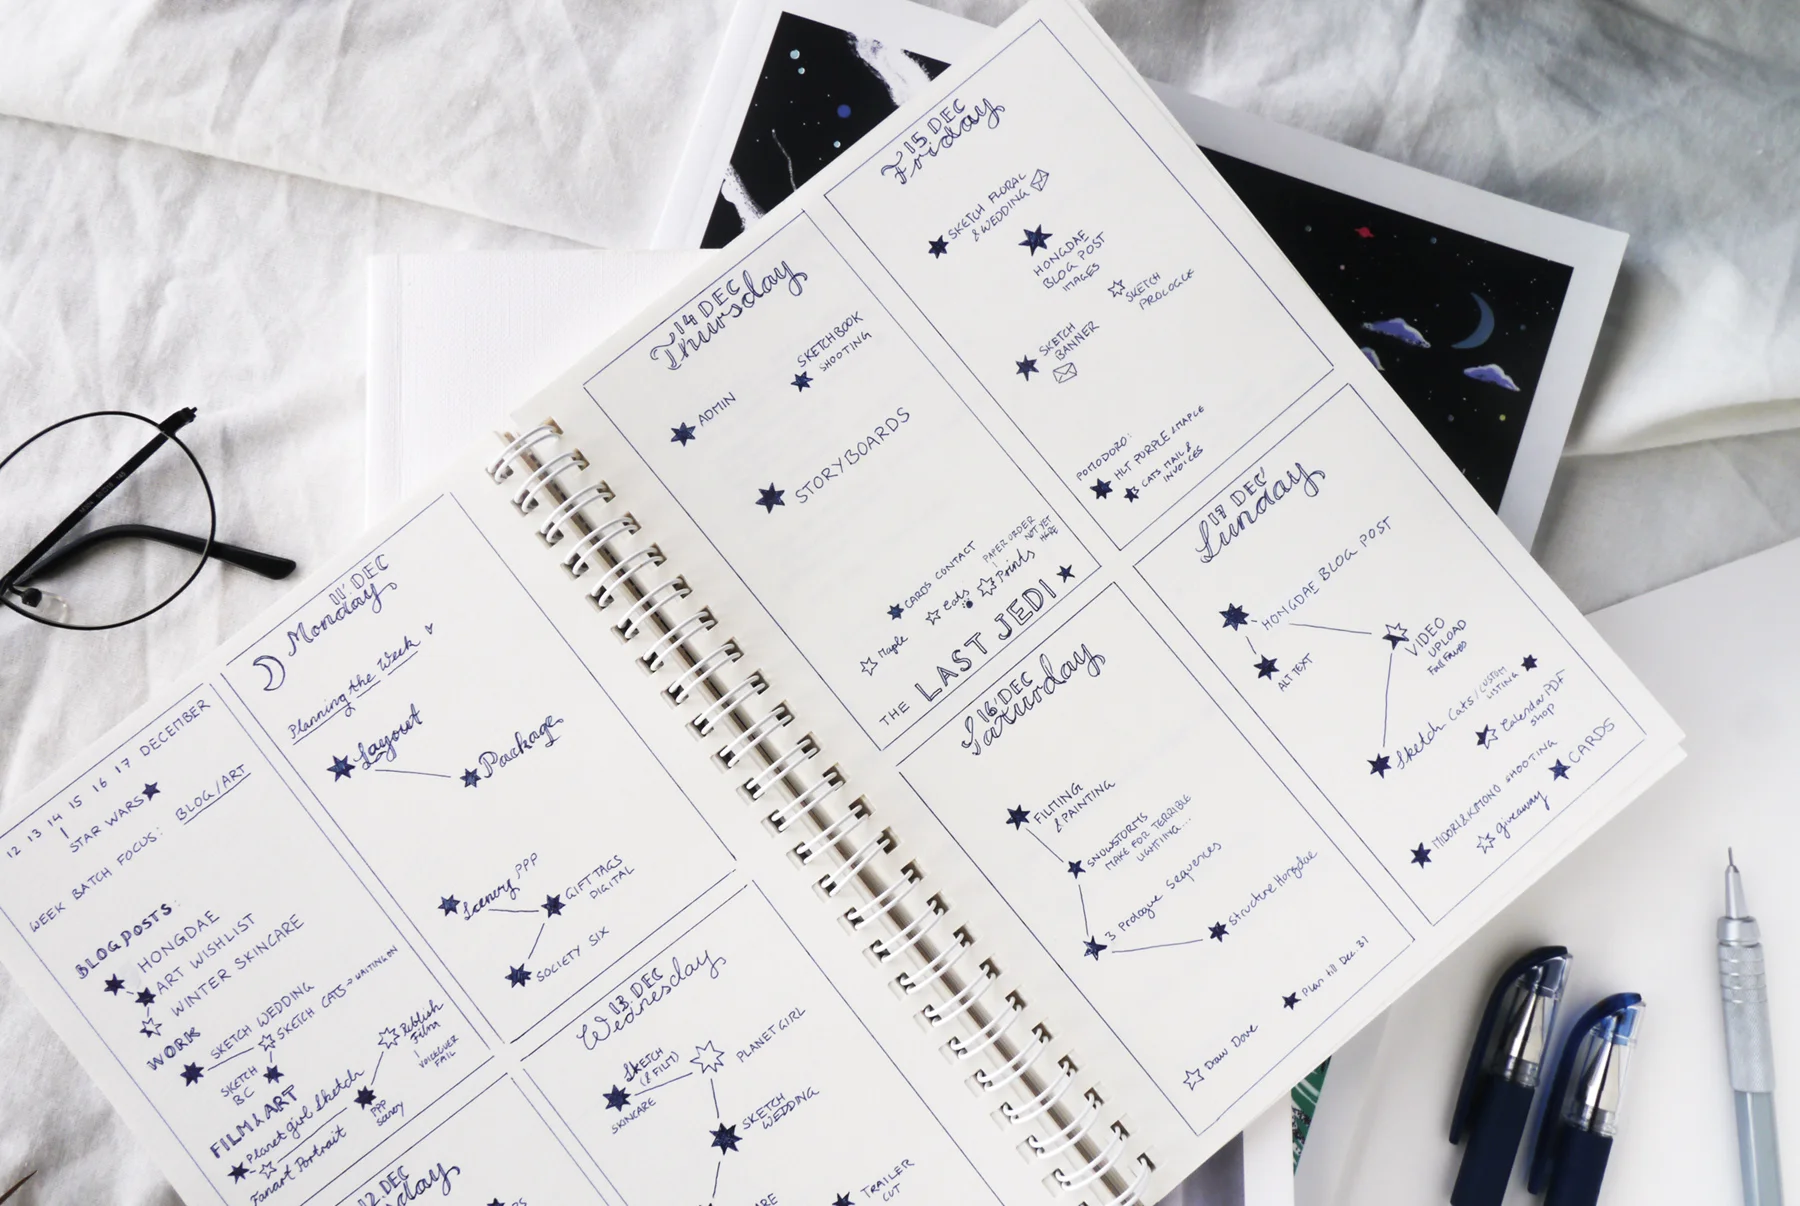 12 13 14 15 16 17 DECEMBER
STAR WARS
WEEK BATCH FOCUS: BLOG/ART
BLOGPOSTS:
HONGDAE
ART WISHLIST
WINTER SKINCARE
WORK
SKETCH WEDDING
SKETCH CATS → WAITING ON
SKETCH
BC
FILM & ART
Planet girl Sketch
Publish
Film
VOICEOVER
FAIL
PPP
Scenery
Fanart Portrait
11. DEC
Monday
Planning the Week
Layout
Package
Scenery PPP
GIFT TAGS
DIGITAL
SOCIETY SIX
12. DEC
13. DEC
Wednesday
SKETCH
(& FILM)
SKINCARE
PLANET GIRL
SKETCH
WEDDING
TRAILER
CUT
14 DEC
Thursday
ADMIN
SKETCHBOOK
SHOOTING
STORYBOARDS
CARDS CONTACT
Cats
PAPER ORDER
NOT YET
HERE
Prints
Maple
THE LAST JEDI
15 DEC
Friday
SKETCH FLORAL
& WEDDING
HONGDAE
BLOG POST
IMAGES
SKETCH
PROLOGUE
SKETCH
BANNER
POMODORO:
HLT PURPLE & MAPLE
CATS MAIL &
INVOICES
16. DEC
Saturday
FILMING
& PAINTING
SNOWSTORMS
MAKE FOR TERRIBLE
LIGHTING...
3 Prologue Sequences
Structure Hongdae
Plan till Dec. 31
Draw Dove
17 DEC
Sunday
HONGDAE BLOG POST
ALT TEXT
VIDEO
UPLOAD
Full Faves
Sketch Cats / CUSTOM
LISTING
Calendar PDF
shop
MIDORI & KIMONO SHOOTING
CARDS
giveaway